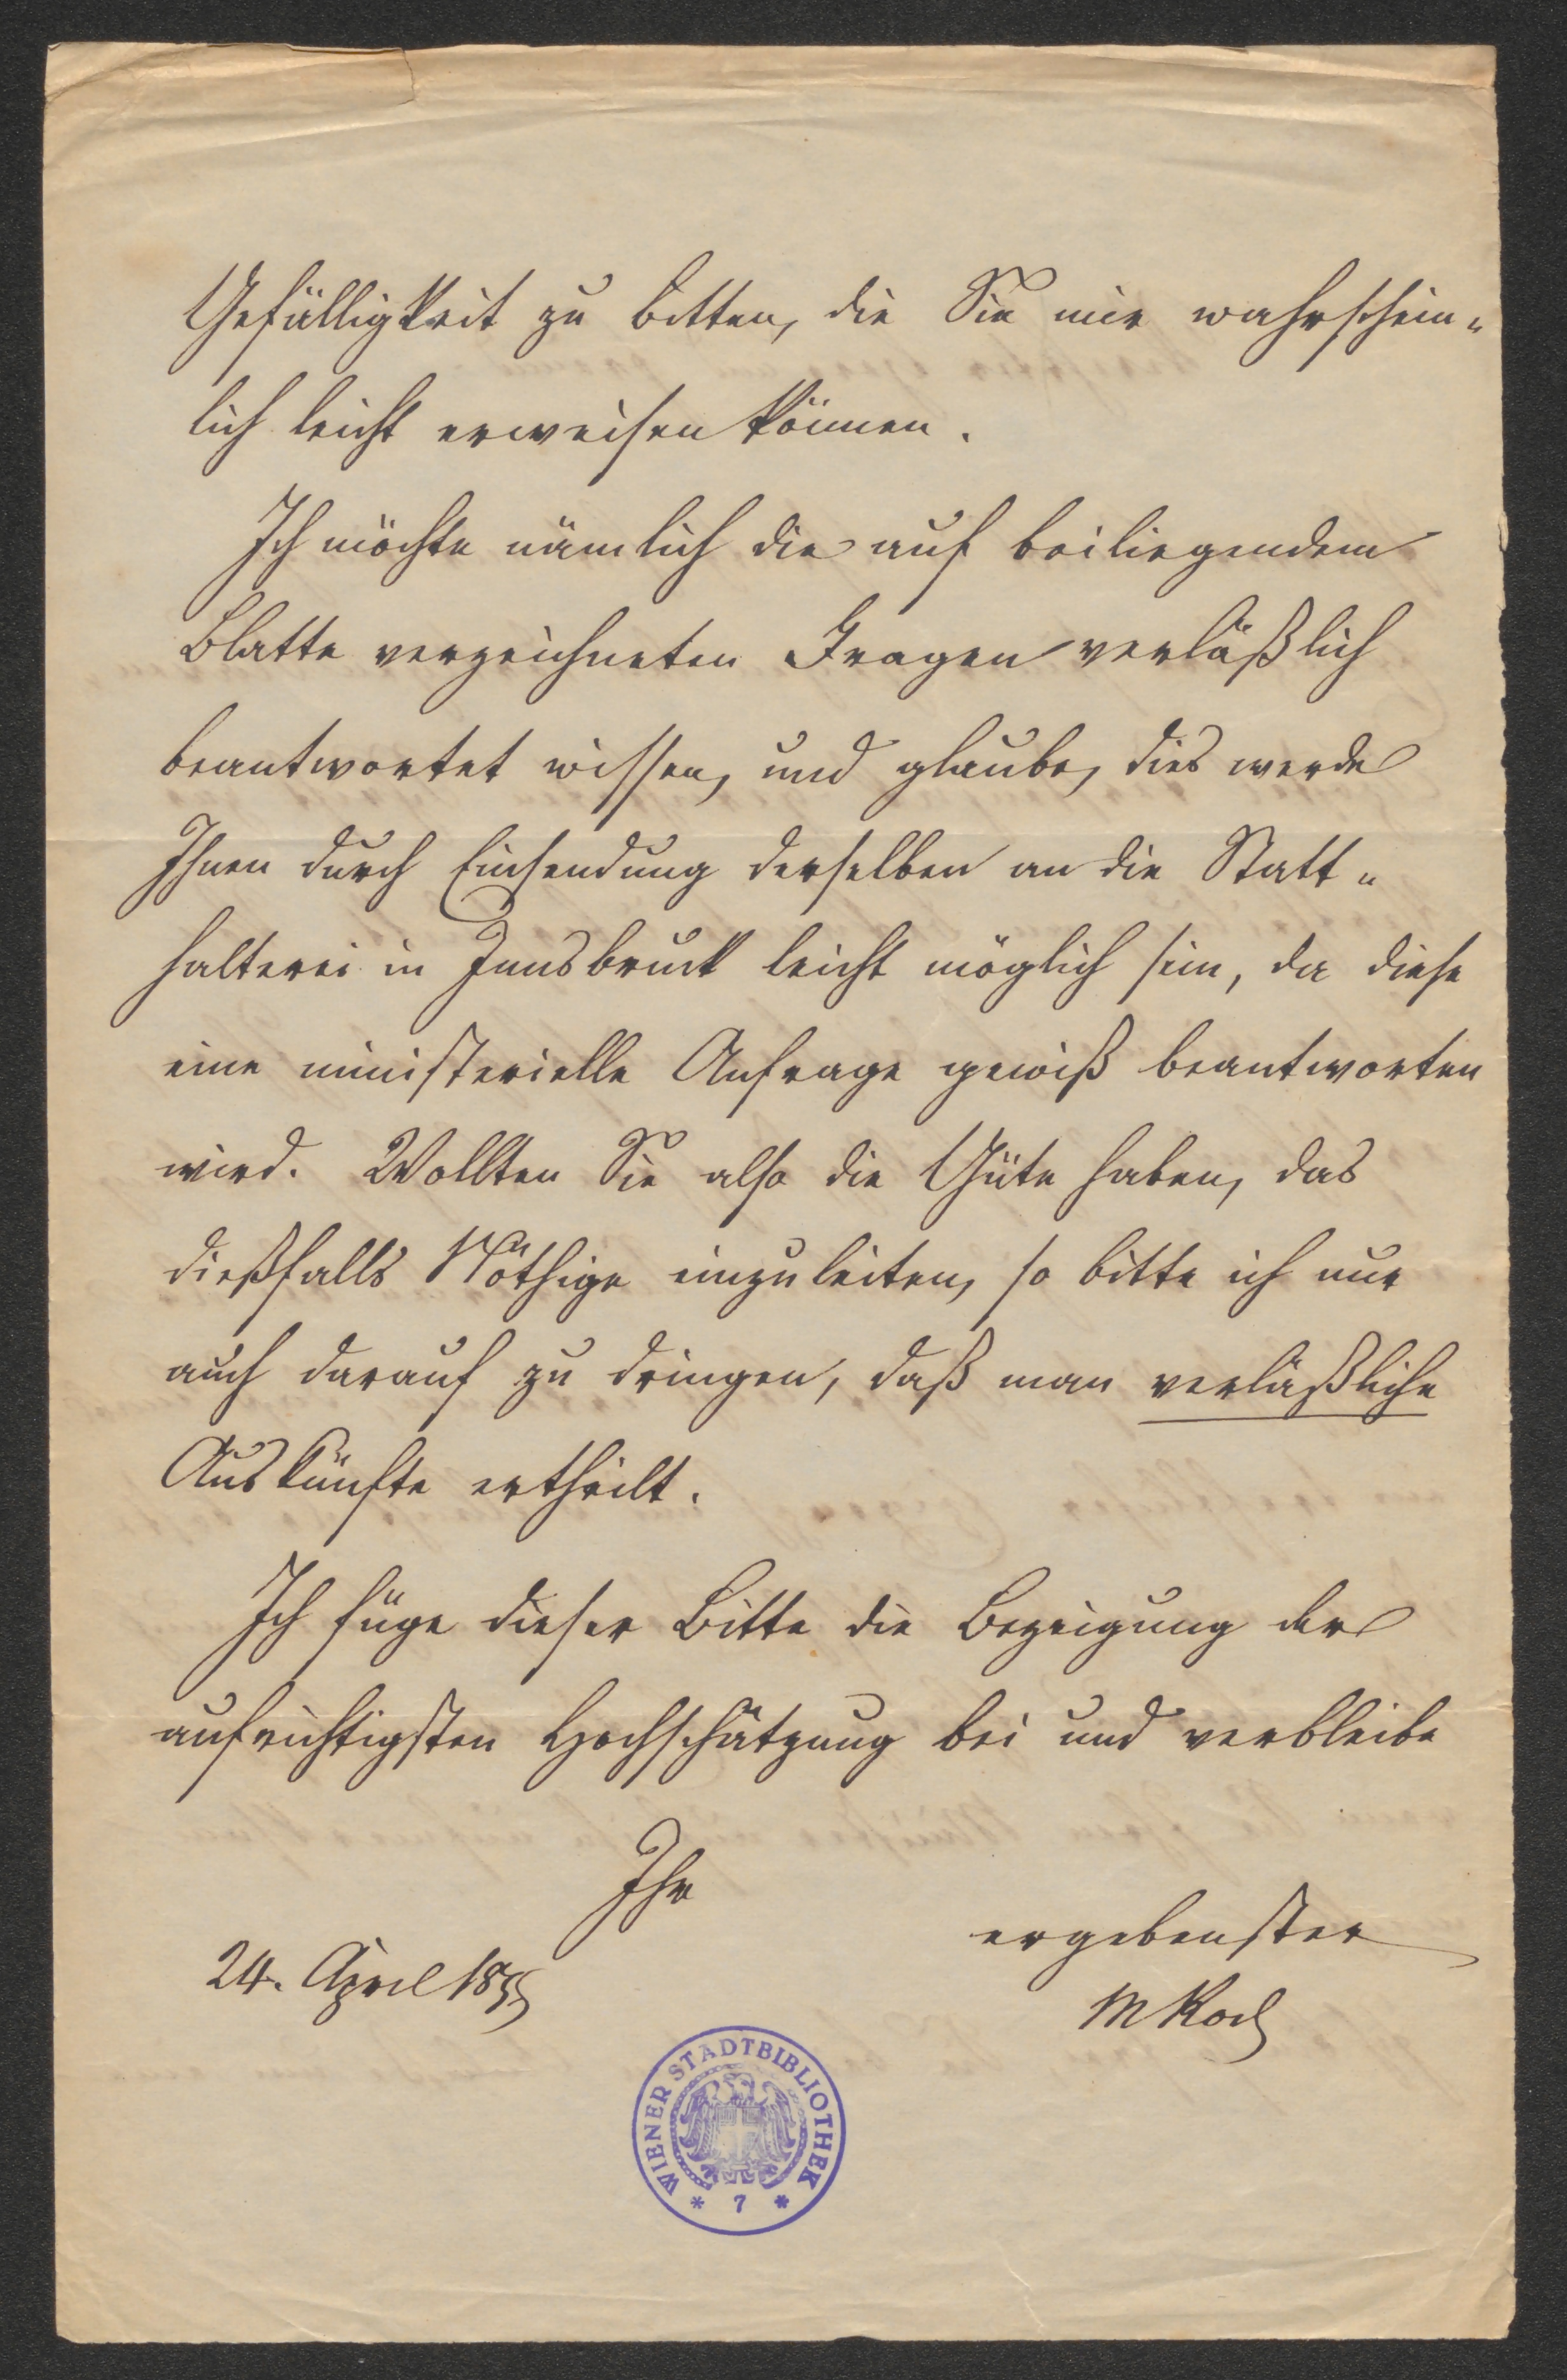 Gefälligkeit zu bitten, die Sie mir wahrschein-
lich leicht erweisen können.
Ich möchte nämlich die auf beiliegendem
Blatte verzeichneten Fragen verläßlich
beantwortet wissen, und glaube, dies werde
Ihnen durch Einsendung derselben an die Statt-
halterei in Innsbruck leicht möglich sein, da diese
eine ministerielle Anfrage gewiß beantworten
wird. Wollten Sie also die Güte haben, das
dießfalls Nöthige einzuleiten, so bitte ich nur
auch darauf zu dringen, daß man verläßliche
Auskünfte ertheilt.
Ich füge dieser Bitte die Bezeigung der
aufrichtigsten Hochschätzung bei und verbleibe
Ihr
ergebenster
24. April 1855
M Koch
WIENER STADTBIBLIOTHEK
* 7 *